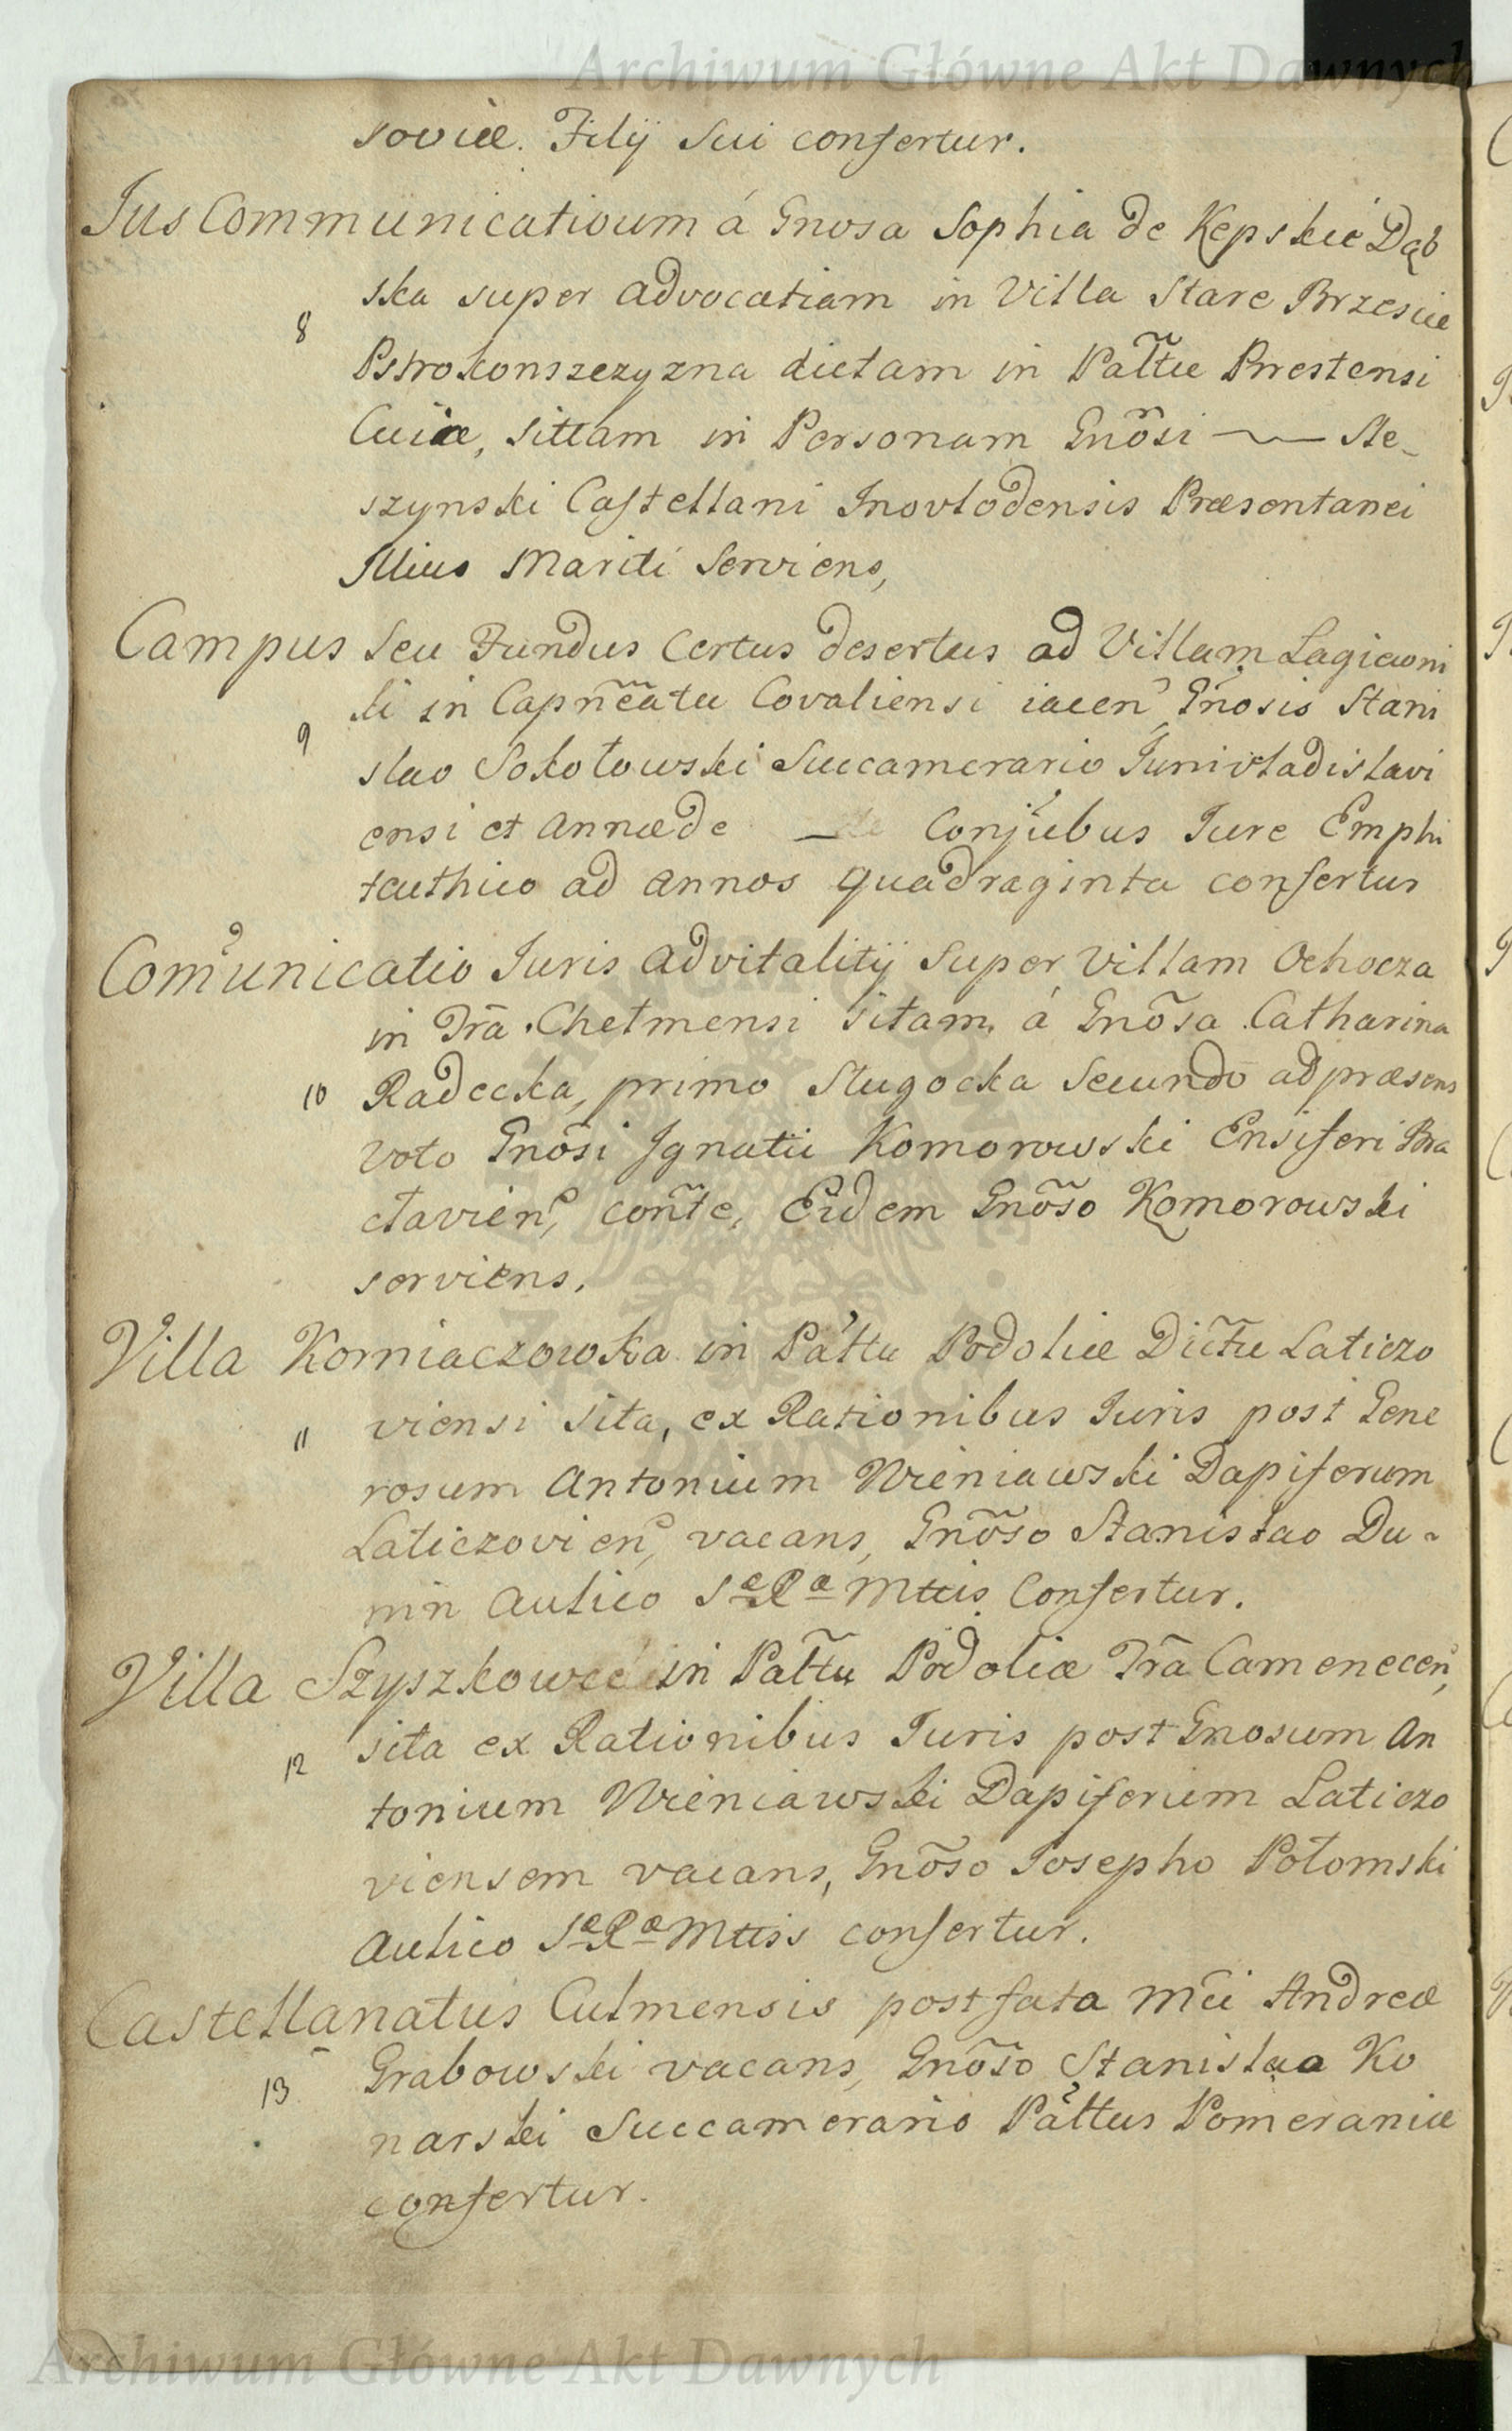 Archiwum Główne Akt Dawnych
soviæ. Filÿ Sui confertur.
Jus Communicativum á Gnosa Sophia de Kępskie Dąb
ska super advocatiam in Villa Stare Brzesiæ
8
Pstrokonszczyzna dictam in Pałtu Brestensi
Cuiæ, sittam in Personam Gnõsi — Ste-
szynski Castellani Inovłodensis Præsentanei
Illius Mariti Serviens,
Campus Seu Fundus Certus desertus ad Villam Lagiewni
ki in Capnẽatu Covaliensi iacen, Gnosis Stani
9
slao Sokołowski Succamerario Junivladislavi
ensi et Annæ de — Conjubus Jure Emphi
teuthico ad annos quadraginta confertur
Comunicatio Juris advitalitÿ Super Villam Ochocza
in Trã Chełmensi sitam á Gnõsa Catharina
10 Radecka, primo Sługocka Secundo ad præsens
voto Gnõsi Ignatii Komorowski Ensiferi Bra
clavien, conte, Eidem Gnõso Komorowski
serviens,
Villa Korniaczowka in Pałtu Podoliæ Dictu Laticzo
11 viensi sita, ex Rationibus Juris post Gene
rosum Antonium Wieniawski Dapiferum
Laticzovien, vacans, Gnõso Stanislao Du-
nin Aulico Sæ Ræ Mttis Confertur.
Villa Szyszkowce in Pałtu Podoliæ Trã Camenecen,
sita ex Rationibus Juris post Gnosum An
12
tonium Wieniawski Dapiferum Laticzo
viensem vacans, Gnõso Josepho Połomski
Aulico Sæ Ræ Mttis confertur.
Castellanatus Culmensis post fata Mci Andreæ
Grabowski vacans, Gnõso Stanislao Ko
13
narski Succamerario Pałtus Pomeraniæ
confertur.
Archiwum Główne Akt Dawnych